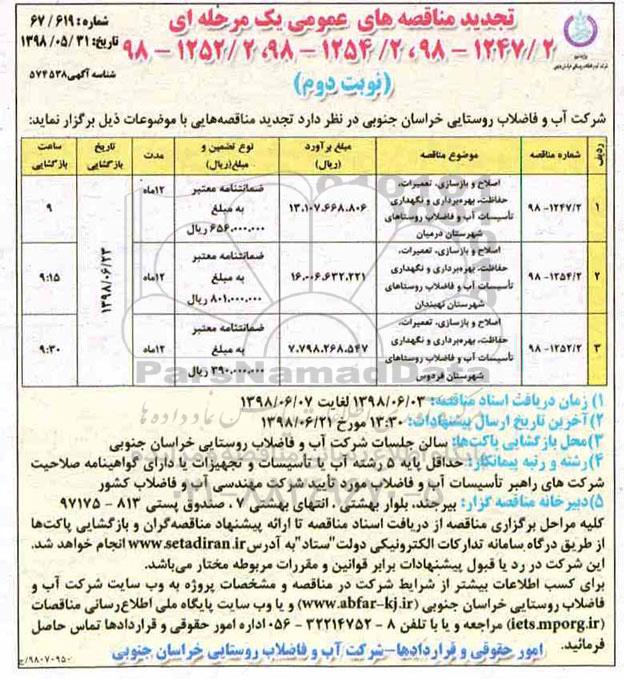 تجدید مناقصه های عمومی یک مرحله ای
۹۸ – ۱۲۴۷/۲ ، ۹۸ – ۱۲۵۴/۲ ، ۹۸ – ۱۲۵۲/۲
(نوبت دوم)
شماره: ۶۷/۶۱۹
تاریخ: ۱۳۹۸/۰۵/۳۱
شناسه آگهی ۵۷۴۵۳۸
شرکت آب و فاضلاب روستایی خراسان جنوبی در نظر دارد تجدید مناقصه‌هایی با موضوعات ذیل برگزار نماید:
ردیف | شماره مناقصه | موضوع مناقصه | مبلغ برآورد (ریال) | نوع تضمین و مبلغ(ریال) | مدت | تاریخ بازگشایی | ساعت بازگشایی
۱ | ۹۸-۱۲۴۷/۲ | اصلاح و بازسازی، تعمیرات، حفاظت، بهره‌برداری و نگهداری تأسیسات آب و فاضلاب روستاهای شهرستان درمیان | ۱۳.۱۰۷.۶۶۸.۸۰۶ | ضمانتنامه معتبر به مبلغ ۶۵۶.۰۰۰.۰۰۰ ریال | ۱۲ماه | ۱۳۹۸/۰۶/۲۳ | ۹
۲ | ۹۸-۱۲۵۴/۲ | اصلاح و بازسازی، تعمیرات، حفاظت، بهره‌برداری و نگهداری تأسیسات آب و فاضلاب روستاهای شهرستان نهبندان | ۱۶.۰۰۶.۶۳۲.۲۲۱ | ضمانتنامه معتبر به مبلغ ۸۰۱.۰۰۰.۰۰۰ ریال | ۱۲ماه | ۹:۱۵
۳ | ۹۸-۱۲۵۲/۲ | اصلاح و بازسازی، تعمیرات، حفاظت، بهره‌برداری و نگهداری تأسیسات آب و فاضلاب روستاهای شهرستان فردوس | ۷.۷۹۸.۲۶۸.۵۴۷ | ضمانتنامه معتبر به مبلغ ۳۹۰.۰۰۰.۰۰۰ ریال | ۱۲ماه | ۹:۳۰
ParsNamadData
۱) زمان دریافت اسناد مناقصه: ۱۳۹۸/۰۶/۰۳ لغایت ۱۳۹۸/۰۶/۰۷
۲)آخرین تاریخ ارسال پیشنهادات: ۱۳:۳۰ مورخ ۱۳۹۸/۰۶/۲۱
۳)محل بازگشایی پاکت‌ها: سالن جلسات شرکت آب و فاضلاب روستایی خراسان جنوبی
۴)رشته و رتبه پیمانکار: حداقل پایه ۵ رشته آب یا تأسیسات و تجهیزات یا دارای گواهینامه صلاحیت
شرکت های راهبر تأسیسات آب و فاضلاب مورد تأیید شرکت مهندسی آب و فاضلاب کشور
۵)دبیرخانه مناقصه گزار: بیرجند، بلوار بهشتی ، انتهای بهشتی ۷ ، صندوق پستی ۸۱۳ - ۹۷۱۷۵
کلیه مراحل برگزاری مناقصه از دریافت اسناد مناقصه تا ارائه پیشنهاد مناقصه‌گران و بازگشایی پاکت‌ها
از طریق درگاه سامانه تدارکات الکترونیکی دولت"ستاد"به آدرس www.setadiran.ir انجام خواهد شد.
این شرکت در رد یا قبول پیشنهادات برابر قوانین و مقررات مربوطه مختار می‌باشد.
برای کسب اطلاعات بیشتر از شرایط شرکت در مناقصه و مشخصات پروژه به وب سایت شرکت آب و
فاضلاب روستایی خراسان جنوبی (www.abfar-kj.ir) و یا وب سایت پایگاه ملی اطلاع‌رسانی مناقصات
(iets.mporg.ir) مراجعه و یا با تلفن ۸ - ۳۲۲۱۴۷۵۲ - ۰۵۶ اداره امور حقوقی و قراردادها تماس حاصل
فرمائید.
امور حقوقی و قراردادها–شرکت آب و فاضلاب روستایی خراسان جنوبی
۹۸۰۷۰۹۵۰/خ